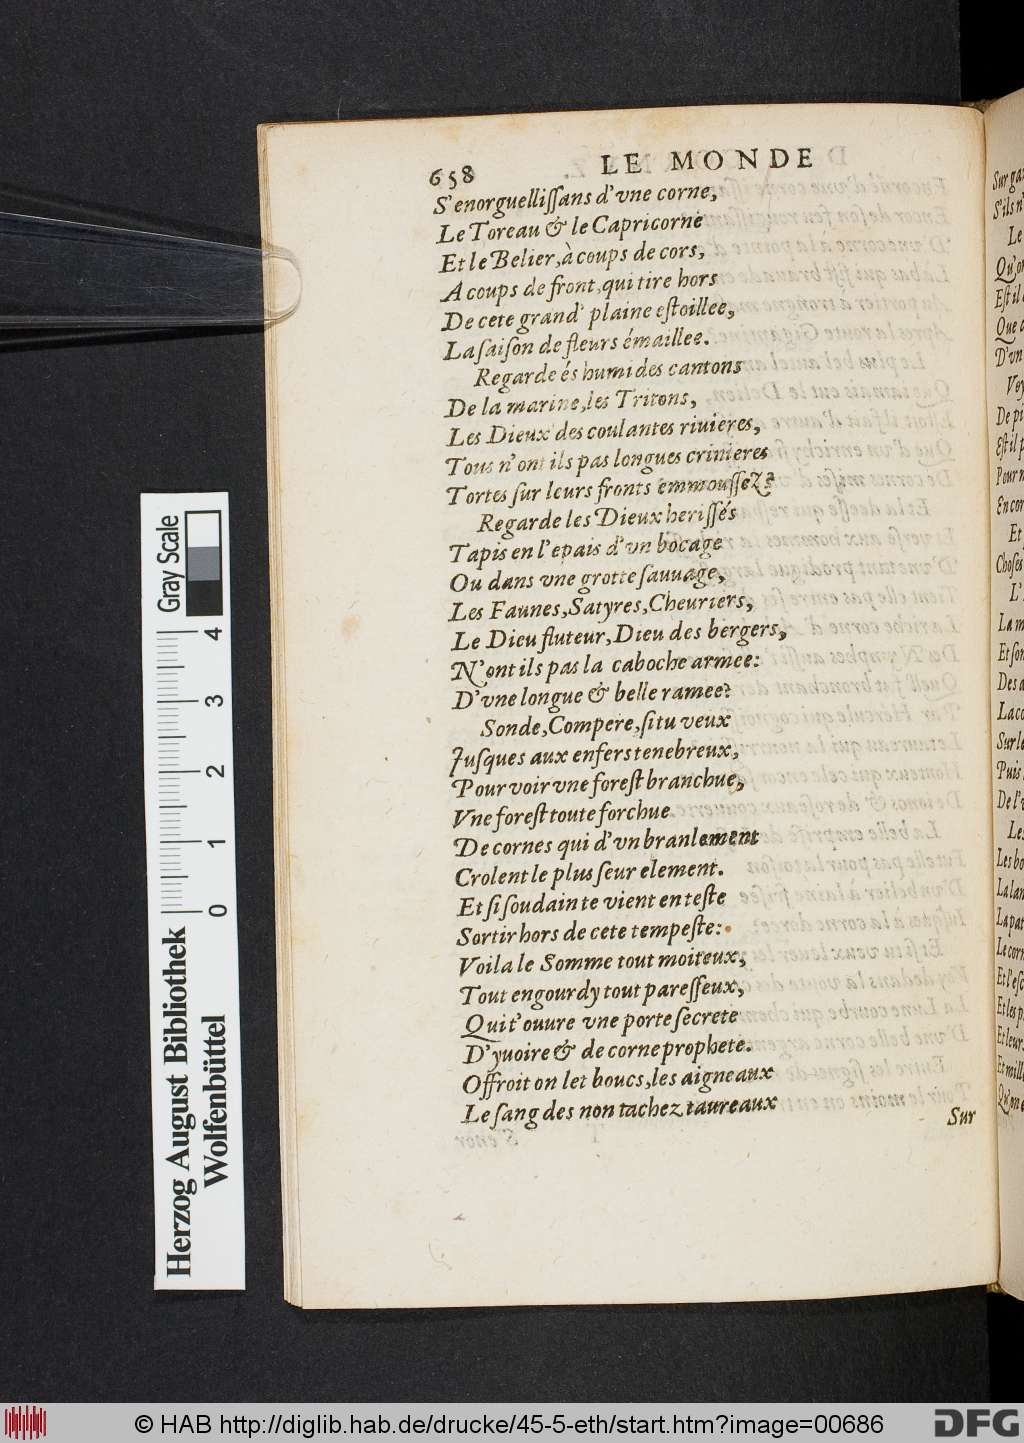 658
LE MONDE
S'enorguellissans d'vne corne,
Le Toreau & le Capricorne
Et le Belier, à coups de cors,
A coups de front, qui tire hors
De cete grand' plaine estoillee,
La saison de fleurs émaillee.
Regarde és humides cantons
De la marine, les Tritons,
Les Dieux des coulantes rivieres,
Tous n'ont ils pas longues crinieres
Tortes sur leurs fronts emmoussez?
Regarde les Dieux herissés
Tapis en l'epais d'vn bocage
Ou dans vne grotte sauvage,
Les Faunes, Satyres, Cheuriers,
Le Dieu fluteur, Dieu des bergers,
N'ont ils pas la caboche armee:
D'vne longue & belle ramee?
Sonde, Compere, si tu veux
Jusques aux enfers tenebreux,
Pour voir vne forest branchue,
Vne forest toute forchue
De cornes qui d'vn branlement
Crolent le plus seur element.
Et si soudain te vient en teste
Sortir hors de cete tempeste:
Voila le Somme tout moiteux,
Tout engourdy tout paresseux,
Qui t'ouure vne porte secrete
D'yuoire & de corne prophete.
Offroit on let boucs, les aigneaux
Le sang des non tachez taureaux
Sur
Sur ga
S'ils n'
Le
Qu'on
Est il
Que
D'vn
Voy
De pi
Est il p
Pour n
Encor
Et
Choses
L'
La m
Et son
Des a
La co
Sur le
Puis
De l'v
Les
Les bo
La lan
La pat
Le corn
Et l'esc
Et les p
Et leur
Et mill
Qu'on e
Gray Scale
4
3
2
1
0
Herzog August Bibliothek
Wolfenbüttel
© HAB http://diglib.hab.de/drucke/45-5-eth/start.htm?image=00686
DFG